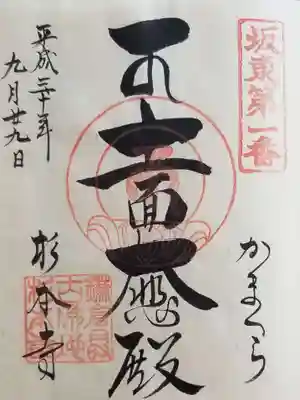 坂東第一番
かまくら
十一面大悲殿
平成三十年
九月廿九日
杉本寺